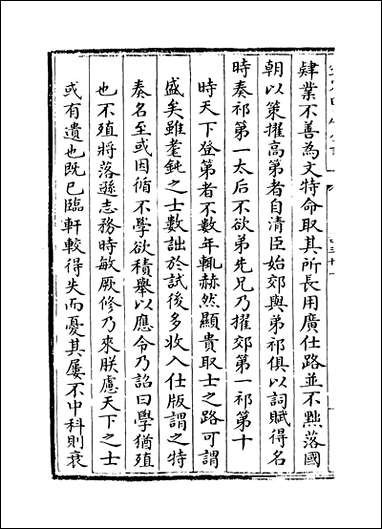 肄業不善為文特命取其所長用廣仕路並不㸃落國
朝以策擢高第者自清臣始郊與弟祁俱以詞賦得名
時奏祁第一太后不欲弟先兄乃擢郊第一祁第十
時天下登第者不數年輒赫然顯貴取士之路可謂
盛矣雖耄鈍之士數詘於試後多收入仕版謂之特
奏名至或因循不學欲積舉以應令乃詔曰學猶殖
也不殖將落遜志務時敏厥修乃來朕慮天下之士
或有遺也既已臨軒較得失而憂其屢不中科則衰